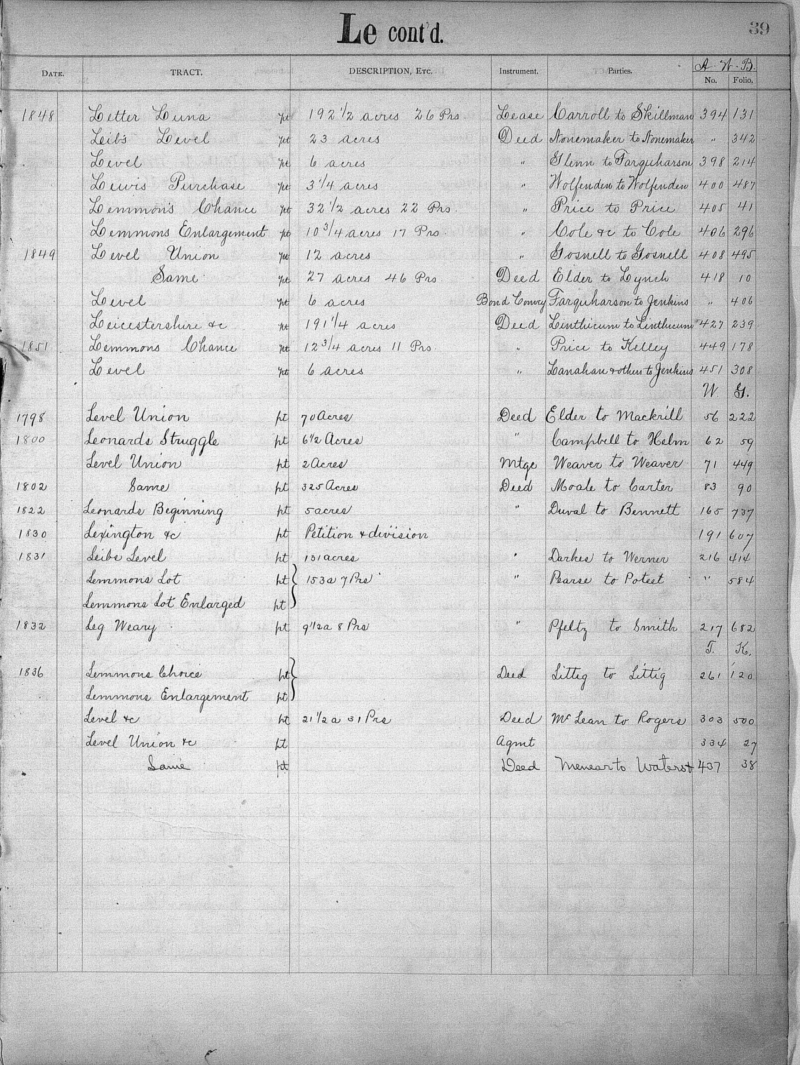 Le cont'd.
39
DATE. TRACT. DESCRIPTION, ETC. Instrument. Parties. A. W. B.
No. Folio.
1848 Letter Luna pt 192 1/2 acres 26 Prs Lease Carroll to Skillman 394 131
Leibs Level pt 23 acres Deed Nonemaker to Nonemaker " 342
Level pt 6 acres " Glenn to Farquharson 398 214
Lewis Purchase pt 3 1/4 acres " Wolfenden to Wolfenden 400 487
Lemmons Chance pt 32 1/2 acres 22 Prs. " Price to Price 405 41
Lemmons Enlargement pt 10 3/4 acres 17 Prs " Cole &c to Cole 406 296
1849 Level Union pt 12 acres " Gosnell to Gosnell 408 495
Same pt 27 acres 46 Prs. Deed Elder to Lynch 418 10
Level pt 6 acres Bond Convey Farquharson to Jenkins " 406
Leicestershire &c pt 191 1/4 acres Deed Linthicum to Linthicum 427 239
1851 Lemmons Chance pt 12 3/4 acres 11 Prs " Price to Kelley 449 178
Level pt 6 acres " Lanahan & others to Jenkins 451 308
W G.
1798 Level Union pt 70 Acres Deed Elder to Mackrill 56 222
1800 Leonards Struggle pt 6 1/2 Acres " Campbell to Helm 62 59
Level Union pt 2 Acres Mtge Weaver to Weaver 71 449
1802 Same pt 325 Acres Deed Moale to Carter 83 90
1822 Leonards Beginning pt 5 acres " Duval to Bennett 165 737
1830 Lexington &c pt Petition & division 191 607
1831 Leibs Level pt 131 acres " Darkes to Werner 216 414
Lemmons Lot pt 153 a 7 Prs " Pearse to Poteet " 584
Lemmons Lot Enlarged pt
1832 Leg Weary pt 9 1/2 a 8 Prs " Pfeltz to Smith 217 682
T. K.
1836 Lemmons Choice pt Deed Littig to Littig 261 120
Lemmons Enlargement pt
Level &c pt 21 1/2 a 31 Prs Deed McLean to Rogers 303 500
Level Union &c pt Agmt 334 27
Same pt Deed to 437 38